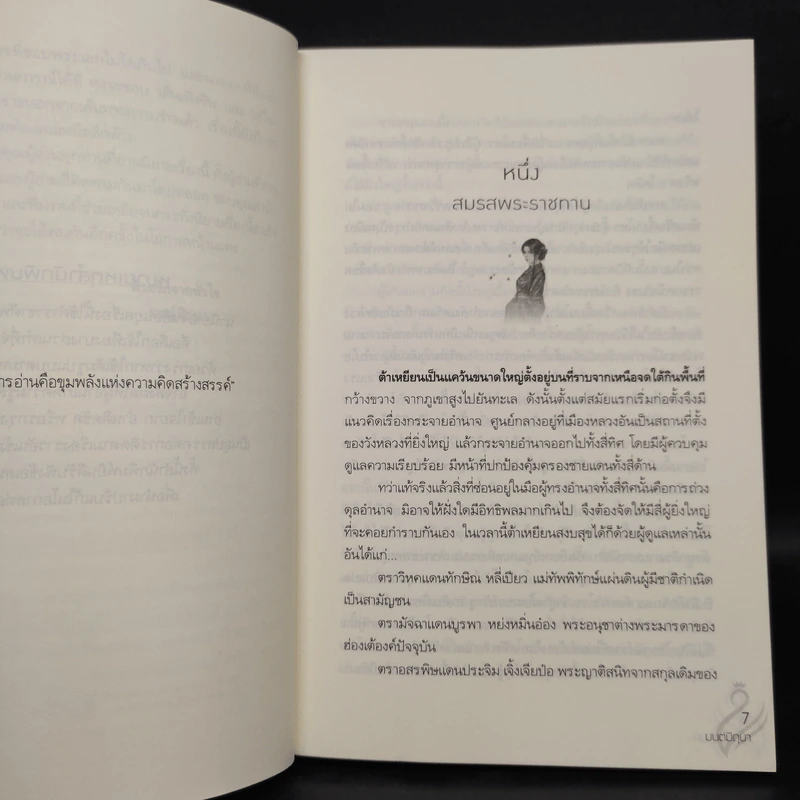 การอ่านคือขุมพลังแห่งความคิดสร้างสรรค์"
หนึ่ง
สมรสพระราชทาน
ต้าเหยียนเป็นแคว้นขนาดใหญ่ตั้งอยู่บนที่ราบจากเหนือจดใต้กินพื้นที่
กว้างขวาง จากภูเขาสูงไปยันทะเล ดังนั้นตั้งแต่สมัยแรกเริ่มก่อตั้งจึงมี
แนวคิดเรื่องกระจายอำนาจ ศูนย์กลางอยู่ที่เมืองหลวงอันเป็นสถานที่ตั้ง
ของวังหลวงที่ยิ่งใหญ่ แล้วกระจายอำนาจออกไปทั้งสี่ทิศ โดยมีผู้ควบคุม
ดูแลความเรียบร้อย มีหน้าที่ปกป้องคุ้มครองชายแดนทั้งสี่ด้าน
ทว่าแท้จริงแล้วสิ่งที่ซ่อนอยู่ในมือผู้ทรงอำนาจทั้งสี่ทิศนั้นคือการถ่วง
ดุลอำนาจ มิอาจให้ฝั่งใดมีอิทธิพลมากเกินไป จึงต้องจัดให้มีสี่ผู้ยิ่งใหญ่
ที่จะคอยกำราบกันเอง ในเวลานี้ต้าเหยียนสงบสุขได้ก็ด้วยผู้ดูแลเหล่านั้น
อันได้แก่...
ตราวิหคแดนทักษิณ หลี่เปียว แม่ทัพพิทักษ์แผ่นดินผู้มีชาติกำเนิด
เป็นสามัญชน
ตรามัจฉาแดนบูรพา หย่งหมิ่นอ๋อง พระอนุชาต่างพระมารดาของ
ฮ่องเต้องค์ปัจจุบัน
ตราอสรพิษแดนประจิม เจิ้งเจียป๋อ พระญาติสนิทจากสกุลเดิมของ
7
มนต์มิถุนา